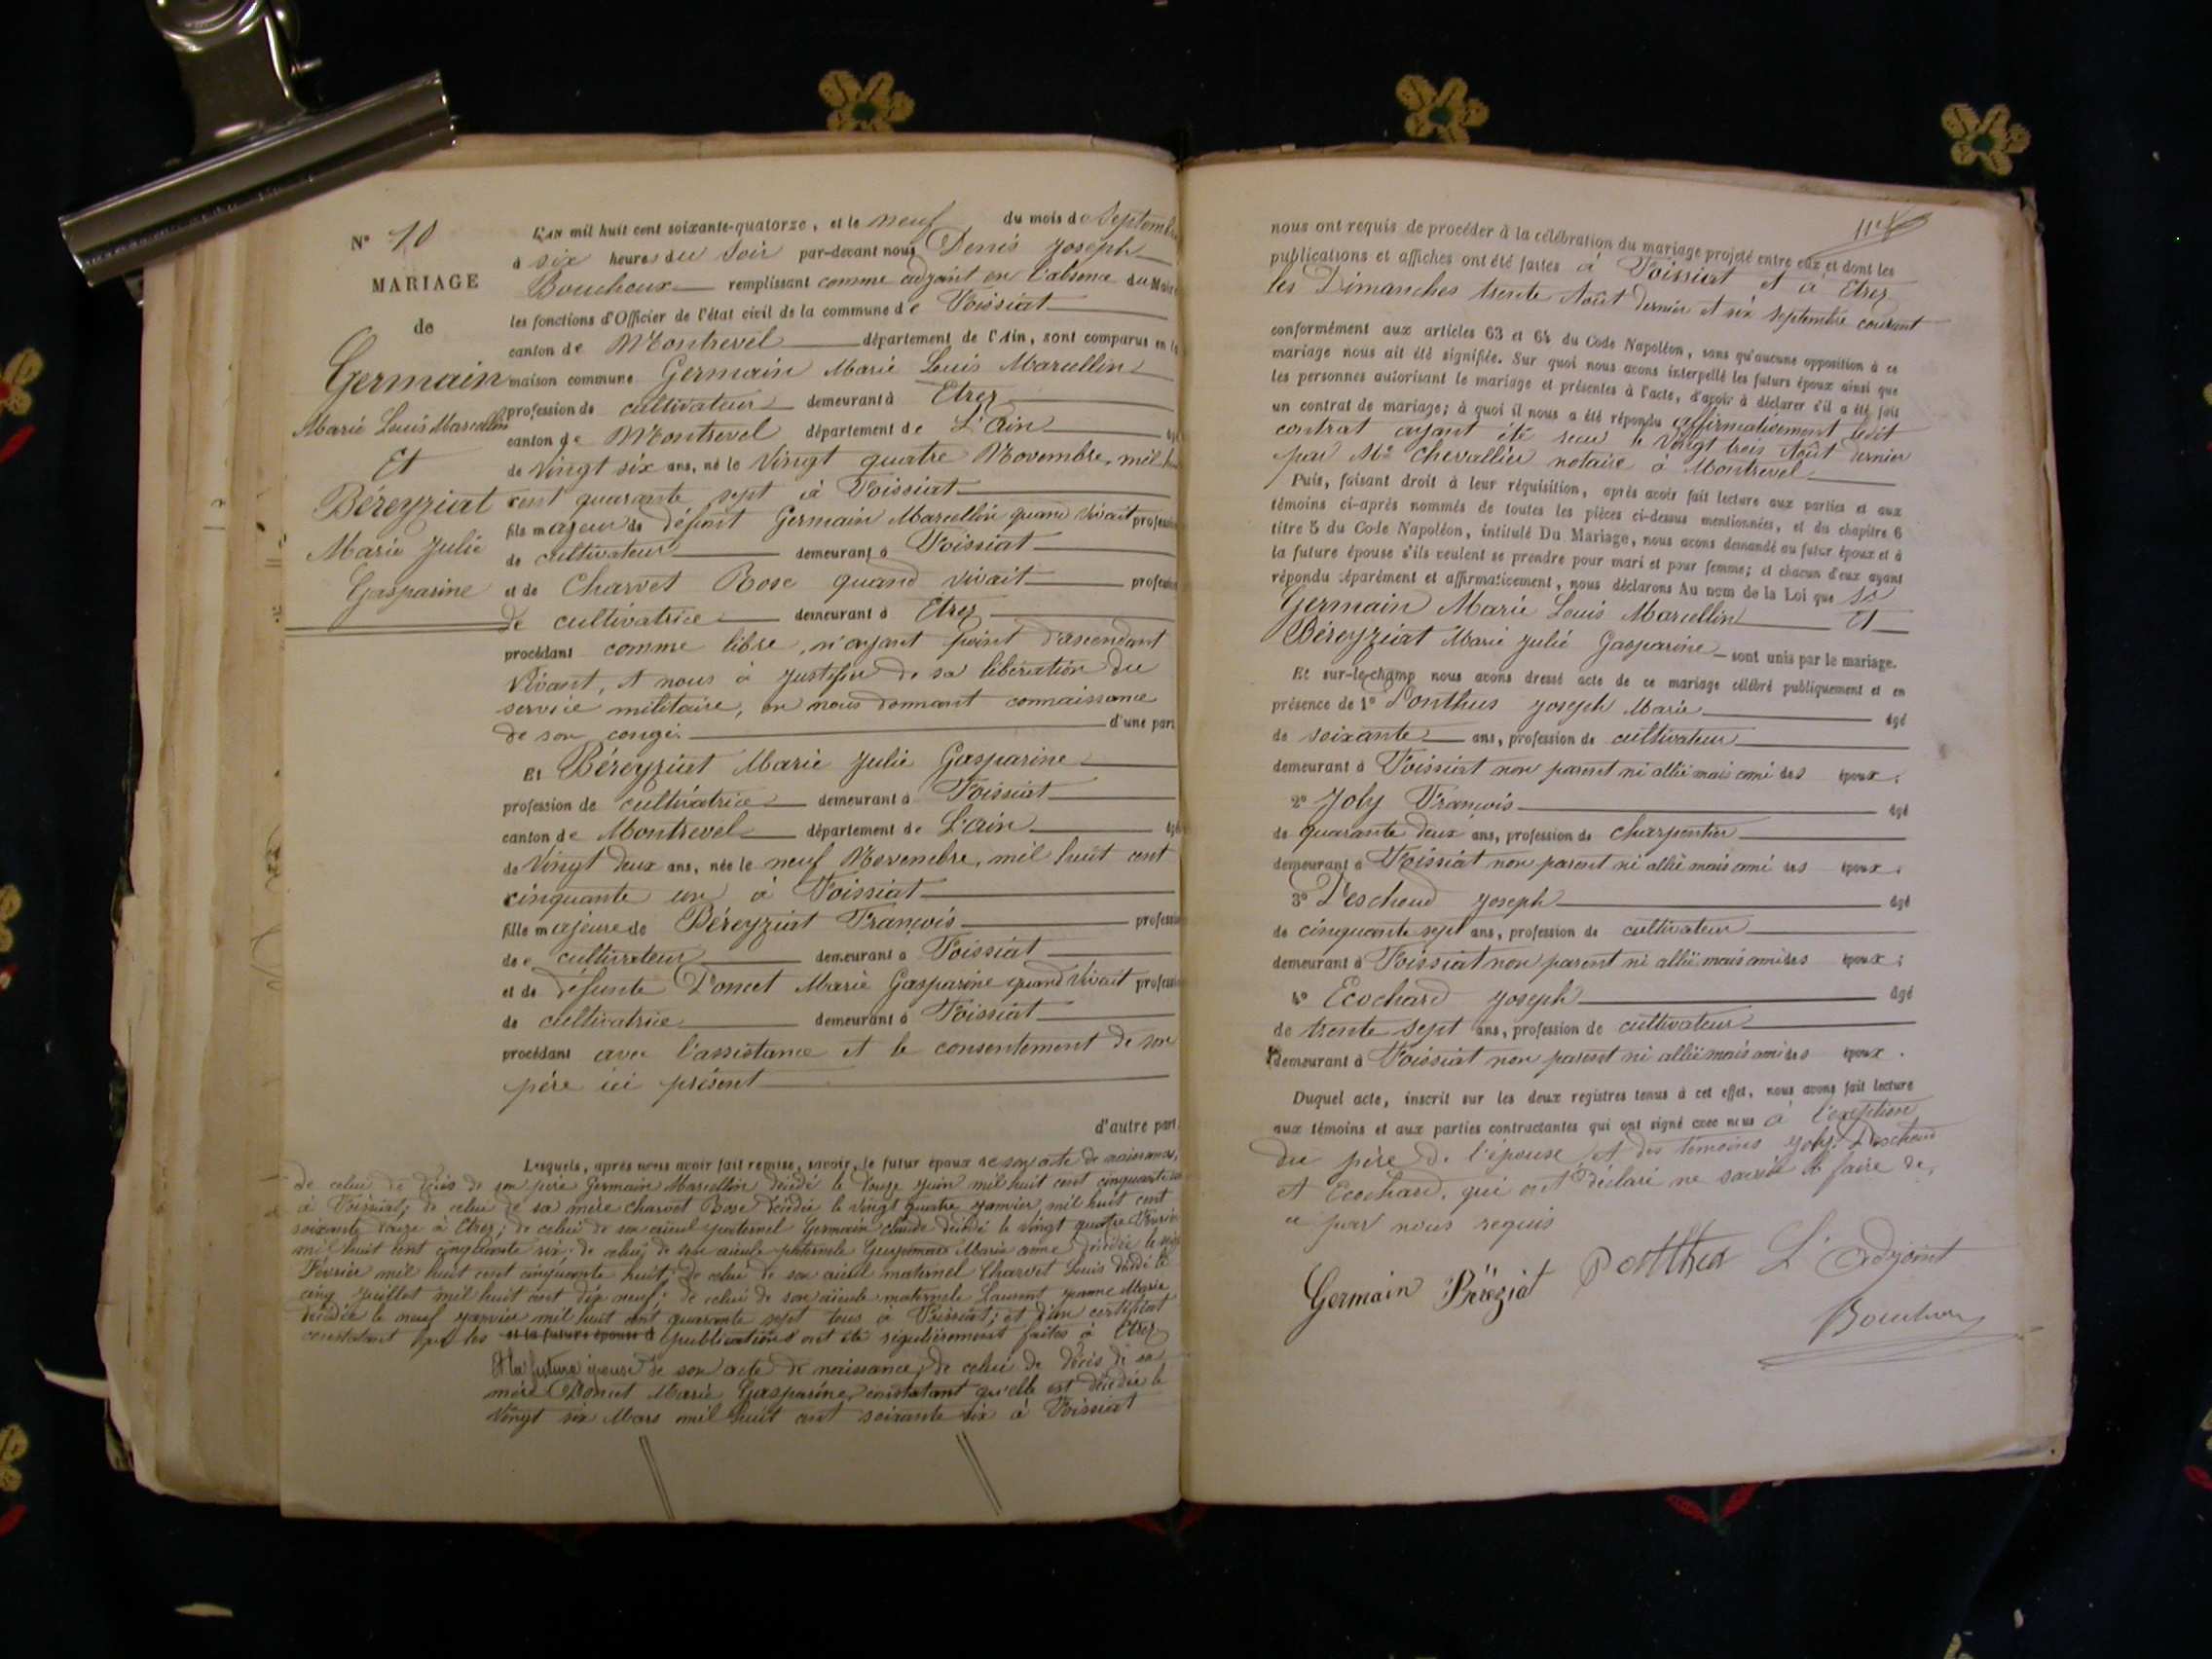 N° 10
MARIAGE
de
Germain
Marie Louis Marcellin
Et
Béreyziat
Marie Julie
Gasparine
L'AN mil huit cent soixante-quatorze, et le neuf du mois de Septembre
à six heures du Soir par-devant nous Denis Joseph
Bouchoux remplissant comme adjoint en l'absence du Maire
les fonctions d'Officier de l'état civil de la commune de Foissiat
canton de Montrevel département de l'Ain, sont comparus en la
maison commune Germain Marie Louis Marcellin
profession de cultivateur demeurant à Etrez
canton de Montrevel département de L'Ain âgé
de Vingt six ans, né le Vingt quatre Novembre, mil huit
cent quarante sept à Foissiat
fils majeur de défunt Germain Marcellin quand vivait profession
de cultivateur demeurant à Foissiat
et de Charvet Rose quand vivait profession
de cultivatrice demeurant à Etrez
procédant comme libre, n'ayant point d'ascendant
Vivant, et nous a justifié de sa libération du
service militaire, en nous donnant connaissance
de son congé. d'une part
Et Béreyziat Marie Julie Gasparine
profession de cultivatrice demeurant à Foissiat
canton de Montrevel département de L'Ain âgé
de Vingt deux ans, née le neuf Novembre, mil huit cent
cinquante un à Foissiat
fille majeure de Béreyziat François profession
de cultivateur demeurant à Foissiat
et de défunte Poncet Marie Gasparine quand vivait profession
de cultivatrice demeurant à Foissiat
procédant avec l'assistance et le consentement de son
père ici présent
d'autre part.
Lesquels, après nous avoir fait remise, savoir, le futur époux de son acte de naissance,
de celui de décès de son père Germain Marcellin décédé le douze juin mil huit cent cinquante
à Foissiat; de celui de sa mère Charvet Rose décédée le vingt quatre janvier mil huit cent
soixante à Etrez; de celui de son aïeul paternel Germain Claude décédé le vingt quatre Février
mil huit cent cinquante six; de celui de son aïeule paternelle Marie Anne décédée le
Février mil huit cent cinquante huit; de celui de son aïeul maternel Charvet Louis décédé le
cinq juillet mil huit cent dix neuf; de celui de son aïeule maternelle Laurent Jeanne Marie
décédée le neuf janvier mil huit cent quarante sept tous à Foissiat; et d'un certificat
constatant que les et la future épouse d publications ont été régulièrement faites à Etrez
Et la future épouse de son acte de naissance, de celui de décès de sa
mère Poncet Marie Gasparine, constatant qu'elle est décédée le
Vingt six Mars mil huit cent soixante six à Foissiat
nous ont requis de procéder à la célébration du mariage projeté entre eux et dont les
publications et affiches ont été faites à Foissiat et à Etrez
les Dimanches trente Août dernier et six Septembre courant
conformément aux articles 63 et 64 du Code Napoléon, sans qu'aucune opposition à ce
mariage nous ait été signifiée. Sur quoi nous avons interpellé les futurs époux ainsi que
les personnes autorisant le mariage et présentes à l'acte, d'avoir à déclarer s'il a été fait
un contrat de mariage; à quoi il nous a été répondu affirmativement ledit
contrat ayant été reçu le Vingt trois Août dernier
par Me Chevallier notaire à Montrevel
Puis, faisant droit à leur réquisition, après avoir fait lecture aux parties et aux
témoins ci-après nommés de toutes les pièces ci-dessus mentionnées, et du chapitre 6
titre 5 du Code Napoléon, intitulé Du Mariage, nous avons demandé au futur époux et à
la future épouse s'ils veulent se prendre pour mari et pour femme; et chacun d'eux ayant
répondu séparément et affirmativement, nous déclarons Au nom de la Loi que
Germain Marie Louis Marcellin Et
Béreyziat Marie Julie Gasparine sont unis par le mariage.
Et sur-le-champ nous avons dressé acte de ce mariage célébré publiquement et en
présence de 1° Ponthus Joseph Marie âgé
de soixante ans, profession de cultivateur
demeurant à Foissiat non parent ni allié mais ami des époux;
2° Joly François âgé
de quarante deux ans, profession de charpentier
demeurant à Foissiat non parent ni allié mais ami des époux;
3° Deschoud Joseph âgé
de cinquante sept ans, profession de cultivateur
demeurant à Foissiat non parent ni allié mais ami des époux;
4° Ecochard Joseph âgé
de trente sept ans, profession de cultivateur
demeurant à Foissiat non parent ni allié mais ami des époux.
Duquel acte, inscrit sur les deux registres tenus à cet effet, nous avons fait lecture
aux témoins et aux parties contractantes qui ont signé avec nous à l'exception
du père de l'épouse et des témoins Joly, Deschoud
et Ecochard, qui ont déclaré ne savoir le faire de
ce par nous requis
Germain Béréziat Ponthus L'Adjoint
Bouchoux